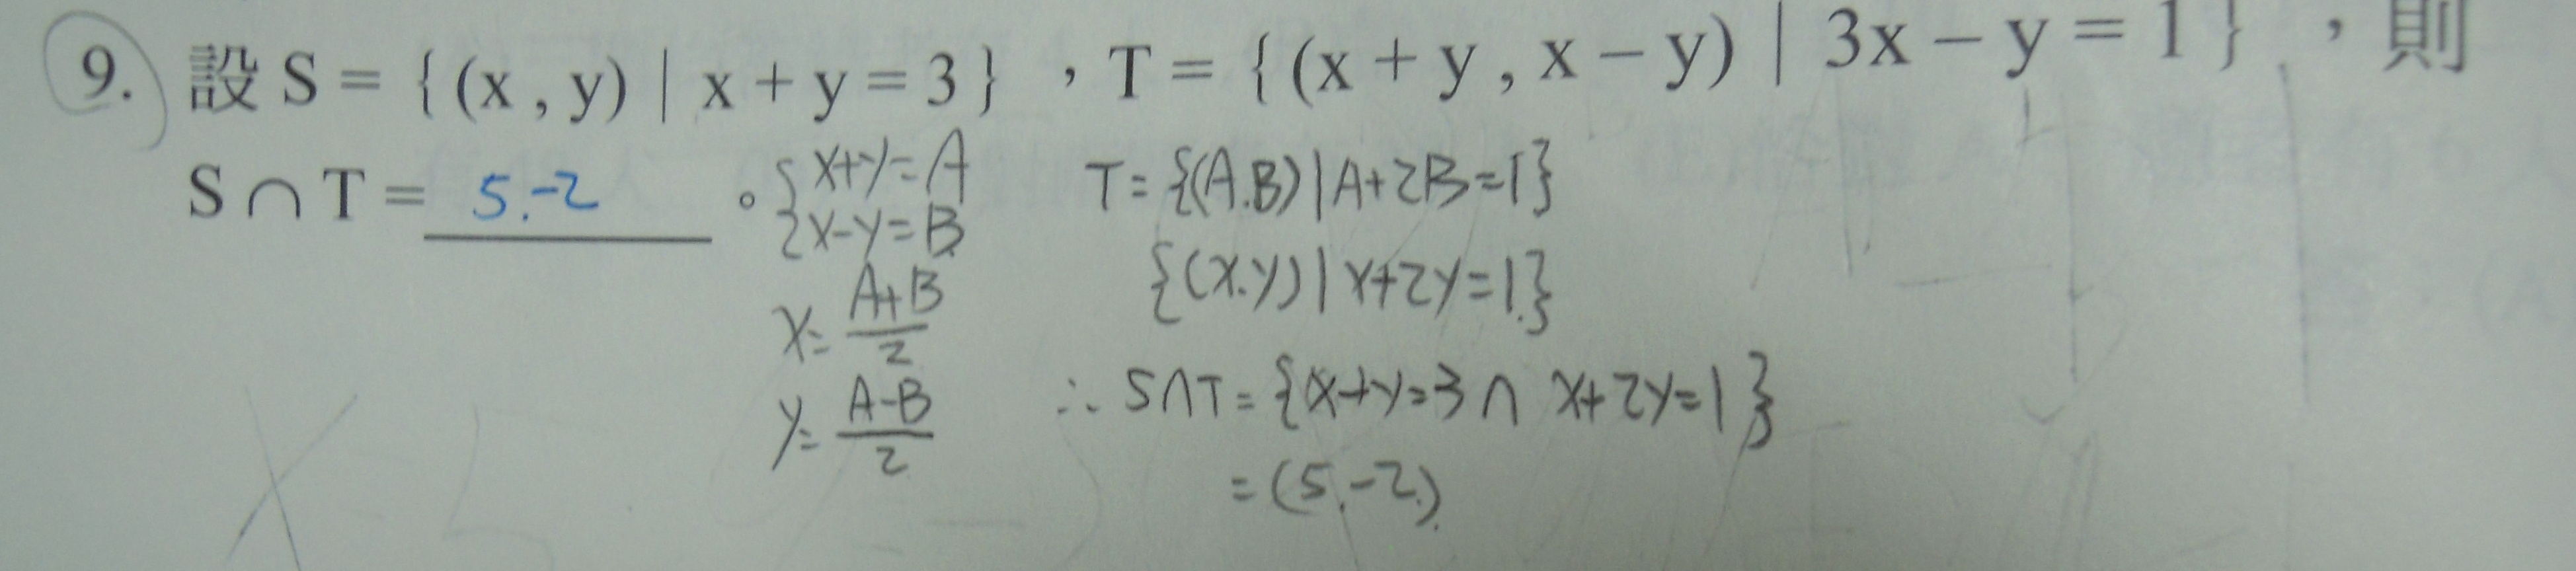 9. 設 S = { (x , y) | x + y = 3 } ，T = { (x + y , x − y) | 3x − y = 1 } ，則
S ∩ T = 5.-2 。
{ x+y=A
x-y=B
x= A+B/2
y= A-B/2
T= {(A.B) | A+2B=1}
{(x.y) | x+2y=1.}
∴ S∩T= {x+y=3 ∩ x+2y=1 }
= (5.-2.)